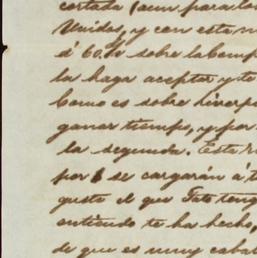 cortada (aun para los
Unidos, y con esta
á 60 sobre
la haga aceptar y te
Como es sobre Liverpo
ganar tiempo, y por
la segunda. Esta
por se cargarán á
gusto el que Tato teng
entiendo te ha hecho,
de que es muy cabal